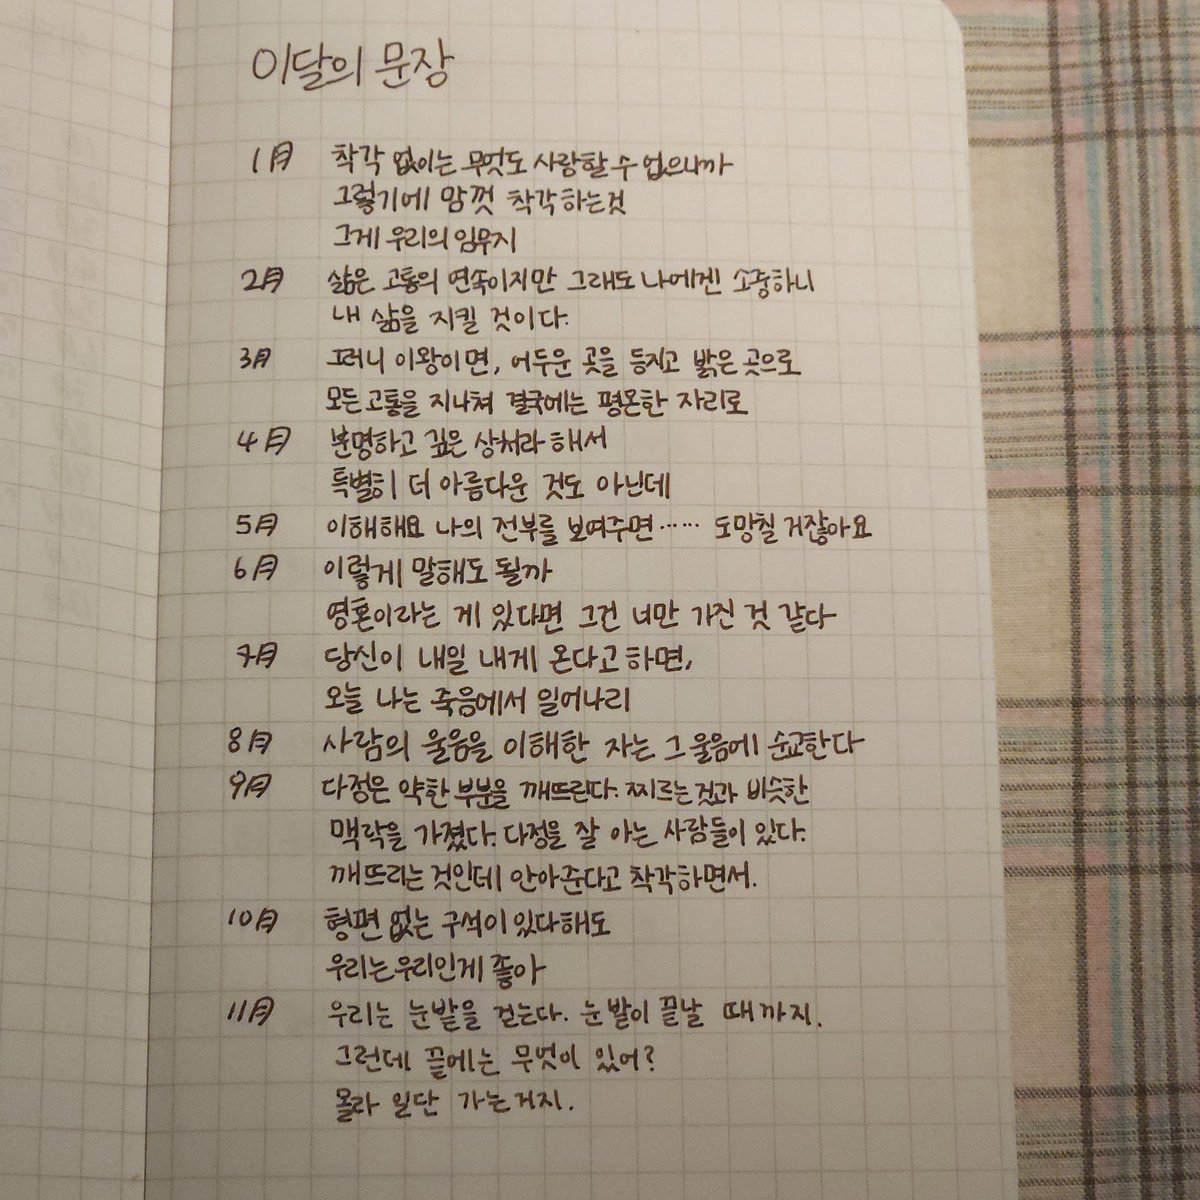 이달의 문장
1月 착각 없이는 무엇도 사랑할 수 없으니까
그렇기에 맘껏 착각하는것
그게 우리의 임무지
2月 삶은 고통의 연속이지만 그래도 나에겐 소중하니
내 삶을 지킬 것이다.
3月 그러니 이왕이면, 어두운 곳을 등지고 밝은 곳으로
모든 고통을 지나쳐 결국에는 평온한 자리로
4月 분명하고 깊은 상처라 해서
특별히 더 아름다운 것도 아닌데
5月 이해해요 나의 전부를 보여주면…… 도망칠 거잖아요
6月 이렇게 말해도 될까
영혼이라는 게 있다면 그건 너만 가진 것 같다
7月 당신이 내일 내게 온다고 하면,
오늘 나는 죽음에서 일어나리
8月 사람의 울음을 이해한 자는 그 울음에 순교한다
9月 다정은 약한 부분을 깨뜨린다. 찌르는것과 비슷한
맥락을 가졌다. 다정을 잘 아는 사람들이 있다.
깨뜨리는 것인데 안아준다고 착각하면서.
10月 형편 없는 구석이 있다해도
우리는 우리인게 좋아
11月 우리는 눈밭을 걷는다. 눈밭이 끝날 때까지.
그런데 끝에는 무엇이 있어?
몰라 일단 가는거지.